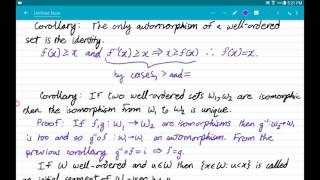 Untitled Note
5:21 PM
Corollary: The only automorphism of a well-ordered
set is the identity.
f(x) ≥ x and f⁻¹(x) ≥ x ⇒ x ≥ f(x) ∴ f(x) = x.
by cases, > and =
Corollary: If two well-ordered sets W₁, W₂ are isomorphic
then the isomorphism from W₁ to W₂ is unique.
Proof: If f, g: W₁ → W₂ are isomorphisms then g⁻¹: W₂ → W₁
is too and so g⁻¹∘f: W₁ → W₁ an automorphism. From the
previous corollary g⁻¹∘f = i ⇒ f = g.
If W well-ordered and u∈W then {x∈W: u<x} is called
an initial segment of W